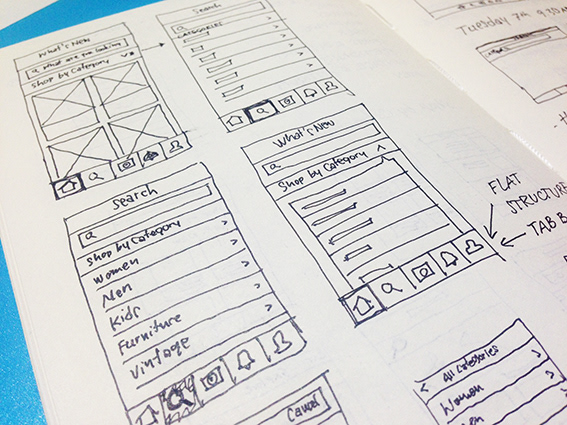 What's New
What are you looking
Shop by Category
Search
CATEGORIES
What's New
Shop by Category
FLAT
STRUCTURE
TAB B
Tuesday 7th 9.30
Search
Shop by Category
Women
Men
Kids
Furniture
Vintage
Cancel
All Categories
Women